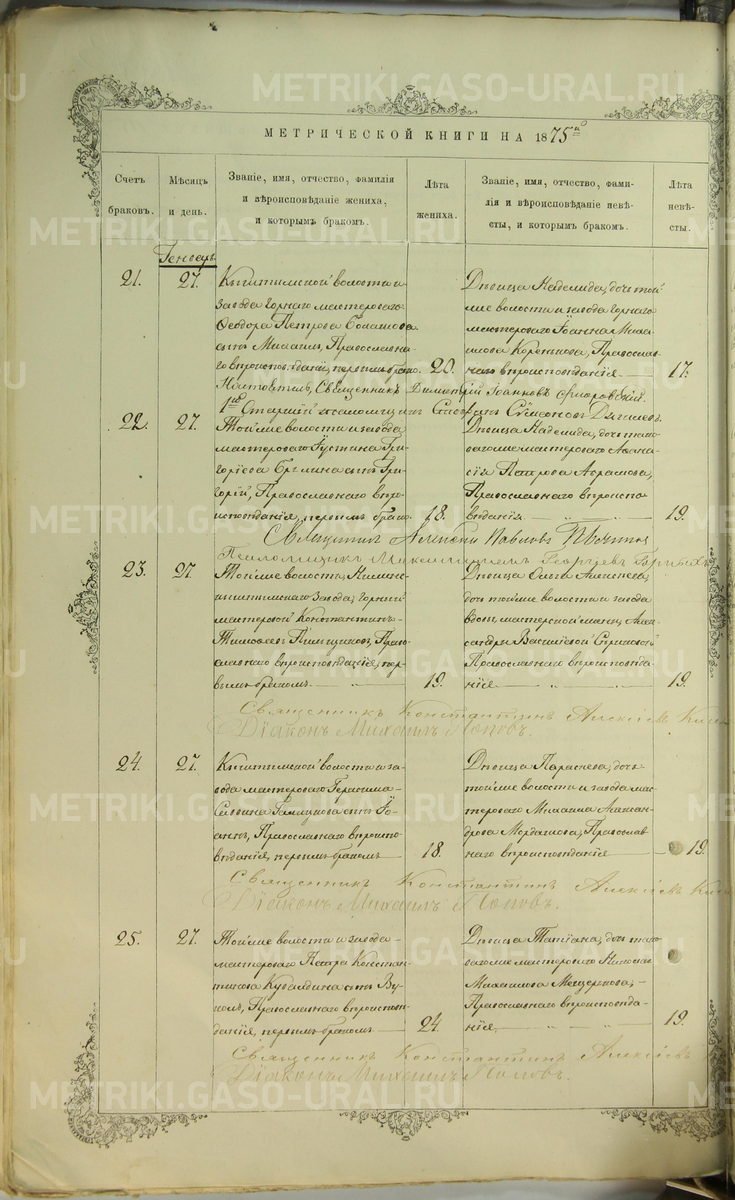 METRIKI.GASO-URAL.RU
МЕТРИЧЕСКОЙ КНИГИ НА 1875й
Счетъ браковъ.
Мѣсяцъ и день.
Званіе, имя, отчество, фамилія
и вѣроисповѣданіе жениха,
и которымъ бракомъ.
Лѣта жениха.
Званіе, имя, отчество, фами-
лія и вѣроисповѣданіе невѣ-
сты, и которымъ бракомъ.
Лѣта невѣ-
сты.
Генварь
21. 27.
Кыштымской волости и
завода горнаго мастероваго
Ѳеодора Петрова
сынъ Михаилъ, Православна-
го вѣроисповѣданія, первымъ бракомъ. 20.
Дѣвица Надежда, дочь той
же волости и завода горнаго
мастероваго Іоанна Миха-
илова Православ-
наго вѣроисповѣданія — 17.
Священникъ Димитрій Іоанновъ
22. 27.
Той же волости и завода
мастероваго Іустина Гри-
горіева сынъ Гри-
горій, Православнаго вѣро-
исповѣданія, первымъ бракомъ. 18.
Дѣвица Надежда, дочь тако-
ваго же мастероваго Аѳана-
сія Петрова Абрамова,
Православнаго вѣроиспо-
вѣданія — 19.
Священникъ Алексѣй Павловъ
Псаломщикъ Георгіевъ
23. 27.
Той же волости, Нижне-
кыштымскаго завода, горный
мастеровой Константинъ
Тимоѳеевъ Право-
славнаго вѣроисповѣданія, пер-
вымъ бракомъ — 19.
Дѣвица Ольга Алексѣева,
дочь той же волости и завода
вдовы мастерской жены Алек-
сандры Васильевой
Православнаго вѣроисповѣда-
нія — „ — 19.
Священникъ Константинъ Алексіевъ
Діаконъ Михаилъ Поповъ.
24. 27.
Кыштымской волости и за-
вода мастероваго Герасима
сынъ Іо-
аннъ, Православнаго вѣроиспо-
вѣданія, первымъ бракомъ — 18.
Дѣвица Параскева, дочь
той же волости и завода мас-
тероваго Михаила Алексан-
дрова Мордашова, Православ-
наго вѣроисповѣданія — 19.
Священникъ Константинъ Алексіевъ
Діаконъ Михаилъ Поповъ.
25. 27.
Той же волости и завода —
мастероваго Петра Констан-
тинова сынъ Ву-
колъ, Православнаго вѣроиспо-
вѣданія, первымъ бракомъ — 24
Дѣвица Татіана, дочь тако-
ваго же мастероваго Николая
Михаилова Мещерякова, —
Православнаго вѣроисповѣда-
нія, „ „ 19.
Священникъ Константинъ Алексіевъ
Діаконъ Михаилъ Поповъ.